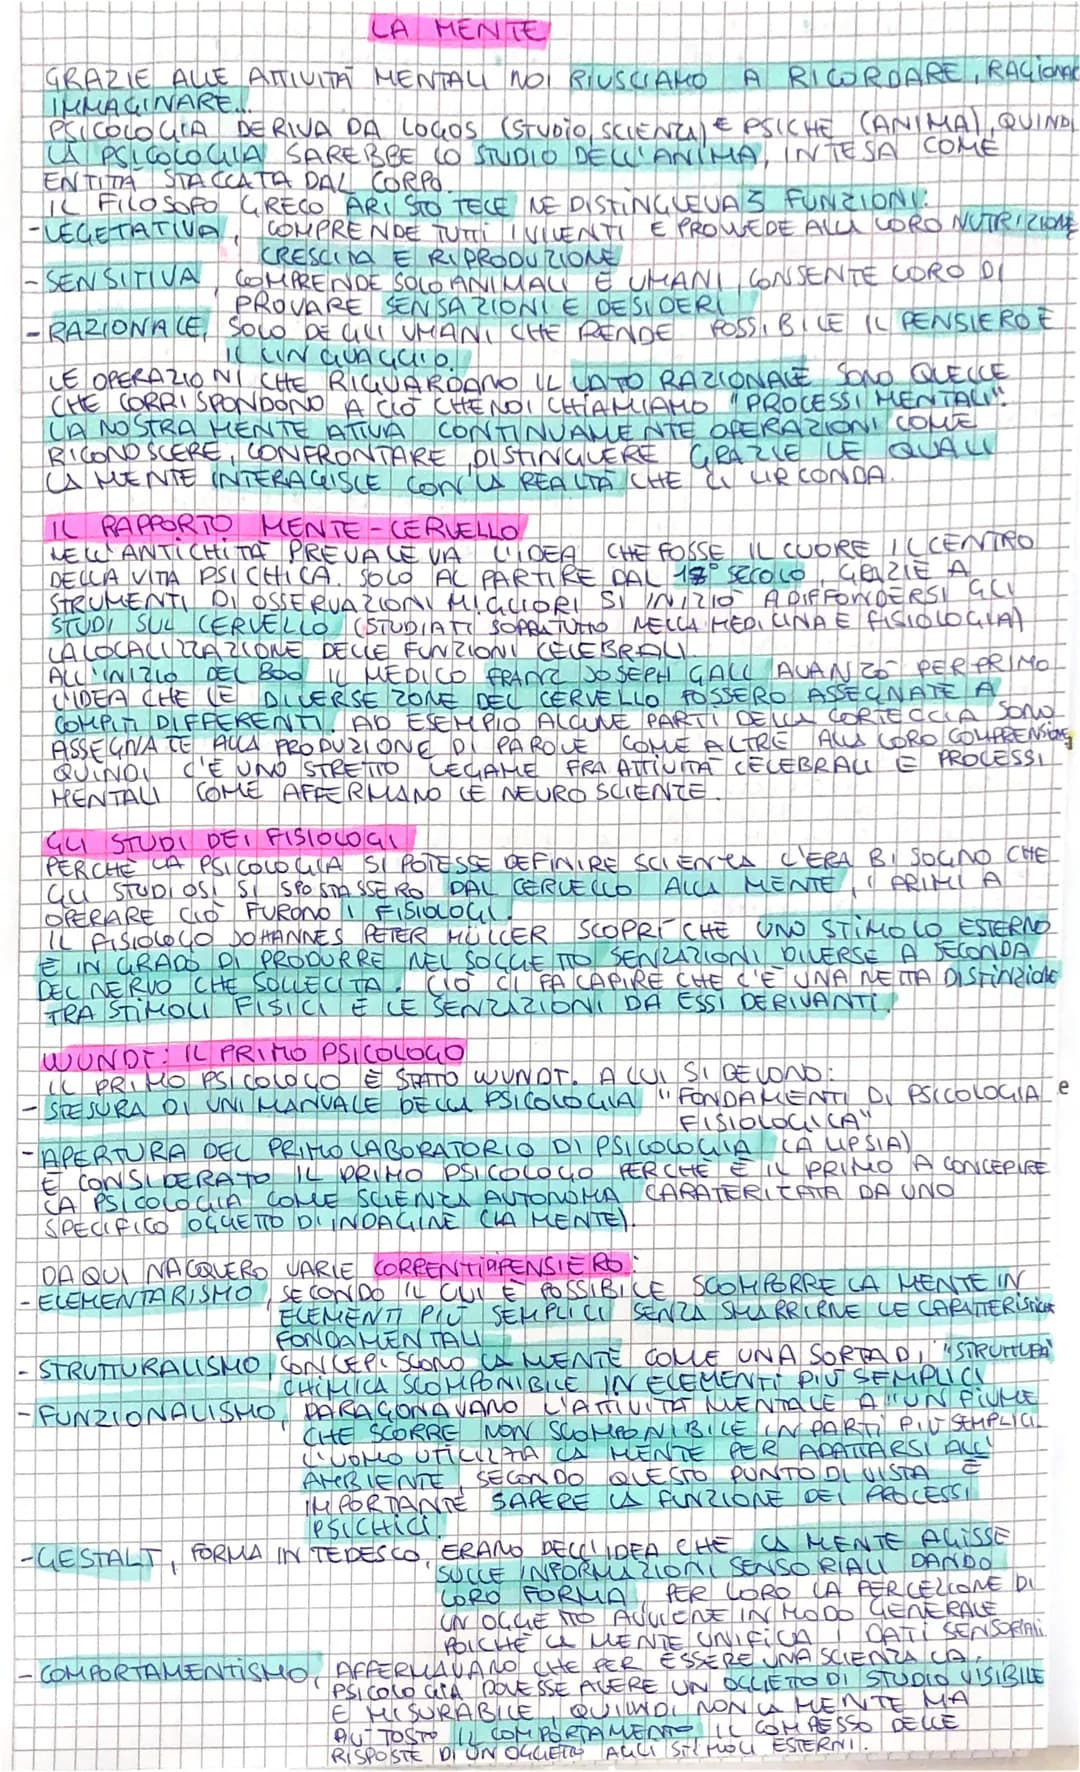 LA MENTE
GRAZIE ALLE ATTIVITÀ MENTALI NOI RIUSCIAMO A RICORDARE, RAGIONAR
IMMAGINARE...
PSICOLOGIA DERIVA DA LOGOS (STUDIO, SCIENZA) E PSICHE (ANIMA), QUINDI
LA PSICOLOGIA SAREBBE LO STUDIO DELL'ANIMA, INTESA COME
ENTITÀ STACCATA DAL CORPO.
IL FILOSOFO GRECO ARISTOTELE NE DISTINGUEVA 3 FUNZIONI:
-VEGETATIVA, COMPRENDE TUTTI I VIVENTI E PROVVEDE ALLA LORO NUTRIZIONE
CRESCITA E RIPRODUZIONE
-SENSITIVA, COMPRENDE SOLO ANIMALI E UMANI, CONSENTE LORO DI
PROVARE SENSAZIONI E DESIDERI
-RAZIONALE, SOLO DEGLI UMANI CHE RENDE POSSIBILE IL PENSIERO E
IL LINGUAGGIO.
LE OPERAZIONI CHE RIGUARDANO IL LATO RAZIONALE SONO QUELLE
CHE CORRISPONDONO A CIÒ CHE NOI CHIAMIAMO "PROCESSI MENTALI".
LA NOSTRA MENTE ATTUA CONTINUAMENTE OPERAZIONI COME
RICONOSCERE, CONFRONTARE, DISTINGUERE GRAZIE LE QUALI
LA MENTE INTERAGISCE CON LA REALTÀ CHE CI CIRCONDA.
IL RAPPORTO MENTE-CERVELLO
NELL'ANTICHITÀ PREVALEVA L'IDEA CHE FOSSE IL CUORE IL CENTRO
DELLA VITA PSICHICA. SOLO AL PARTIRE DAL 18° SECOLO, GRAZIE A
STRUMENTI DI OSSERVAZIONI MIGLIORI SI INIZIÒ A DIFFONDERSI GLI
STUDI SUL CERVELLO (STUDIATI SOPRATUTTO NELLA MEDICINA E FISIOLOGIA)
LA LOCALIZZAZIONE DELLE FUNZIONI CELEBRALI.
ALL'INIZIO DEL 800 IL MEDICO FRANZ JOSEPH GALL AVANZÒ PER PRIMO
L'IDEA CHE LE DIVERSE ZONE DEL CERVELLO FOSSERO ASSEGNATE A
COMPITI DIFFERENTI. AD ESEMPIO ALCUNE PARTI DELLA CORTECCIA SONO
ASSEGNATE ALLA PRODUZIONE DI PAROLE COME ALTRE ALLA LORO COMPRENSIONE
QUINDI C'È UNO STRETTO LEGAME FRA ATTIVITÀ CELEBRALI E PROCESSI
MENTALI COME AFFERMANO LE NEUROSCIENTE.
GLI STUDI DEI FISIOLOGI
PERCHÈ LA PSICOLOGIA SI POTESSE DEFINIRE SCIENTZA C'ERA BISOGNO CHE
GLI STUDIOSI SI SPOSTASSERO DAL CERVELLO ALLA MENTE, I PRIMI A
OPERARE CIÒ FURONO I FISIOLOGI.
IL FISIOLOGO JOHANNES PETER MÜLLER SCOPRÌ CHE UNO STIMOLO ESTERNO
È IN GRADO DI PRODURRE NEL SOGGETTO SENZAZIONI DIVERSE A SECONDA
DEL NERVO CHE SOLLECITA. CIÒ CI FA CAPIRE CHE C'È UNA NETTA DISTINZIONE
TRA STIMOLI FISICI E LE SENZAZIONI DA ESSI DERIVANTI.
WUNDT: IL PRIMO PSICOLOGO
IL PRIMO PSICOLOGO È STATO WUNDT. A LUI SI DEVONO:
- STESURA DI UNI MANUALE DELLA PSICOLOGIA "FONDAMENTI DI PSICOLOGIA e
FISIOLOGICA"
-APERTURA DEL PRIMO LABORATORIO DI PSICOLOGIA (A LIPSIA)
È CONSIDERATO IL PRIMO PSICOLOGO PERCHÈ È IL PRIMO A CONCEPIRE
LA PSICOLOGIA COME SCIENZA AUTONOMA CARATERIZZATA DA UNO
SPECIFICO OGGETTO DI INDAGINE (LA MENTE).
DA QUI NACQUERO VARIE CORRENTI DI PENSIERO:
-ELEMENTARISMO, SECONDO IL CUI È POSSIBILE SCOMPORRE LA MENTE IN
ELEMENTI PIÙ SEMPLICI SENZA SMARRIRNE LE CARATTERISTICHE
FONDAMENTALI
- STRUTTURALISMO, CONCEPISCONO LA MENTE COME UNA SORTA DI "STRUTTURA"
CHIMICA SCOMPONIBILE IN ELEMENTI PIÙ SEMPLICI
-FUNZIONALISMO, PARAGONAVANO L'ATTIVITÀ MENTALE A "UN FIUME
CHE SCORRE NON SCOMPONIBILE IN PARTI PIÙ SEMPLICI.
L'UOMO UTILIZZA LA MENTE PER ADATTARSI ALL'
AMBIENTE, SECONDO QUESTO PUNTO DI VISTA È
IMPORTANTE SAPERE LA FUNZIONE DEI PROCESSI
PSICHICI.
-GESTALT, FORMA IN TEDESCO, ERANO DELL'IDEA CHE LA MENTE AGISSE
SULLE INFORMAZIONI SENSORIALI DANDO
LORO FORMA, PER LORO LA PERCEZIONE DI
UN OGGETTO AVVIENE IN MODO GENERALE
POICHÈ LA MENTE UNIFICA I DATI SENSORIALI.
-COMPORTAMENTISMO, AFFERMAVANO CHE PER ESSERE UNA SCIENZA LA
PSICOLOGIA DOVESSE AVERE UN OGGETTO DI STUDIO VISIBILE
E MISURABILE, QUINDI NON LA MENTE MA
PIUTTOSTO IL COMPORTAMENTO, IL COMPLESSO DELLE
RISPOSTE DI UN OGGETTO AGLI STIMOLI ESTERNI.